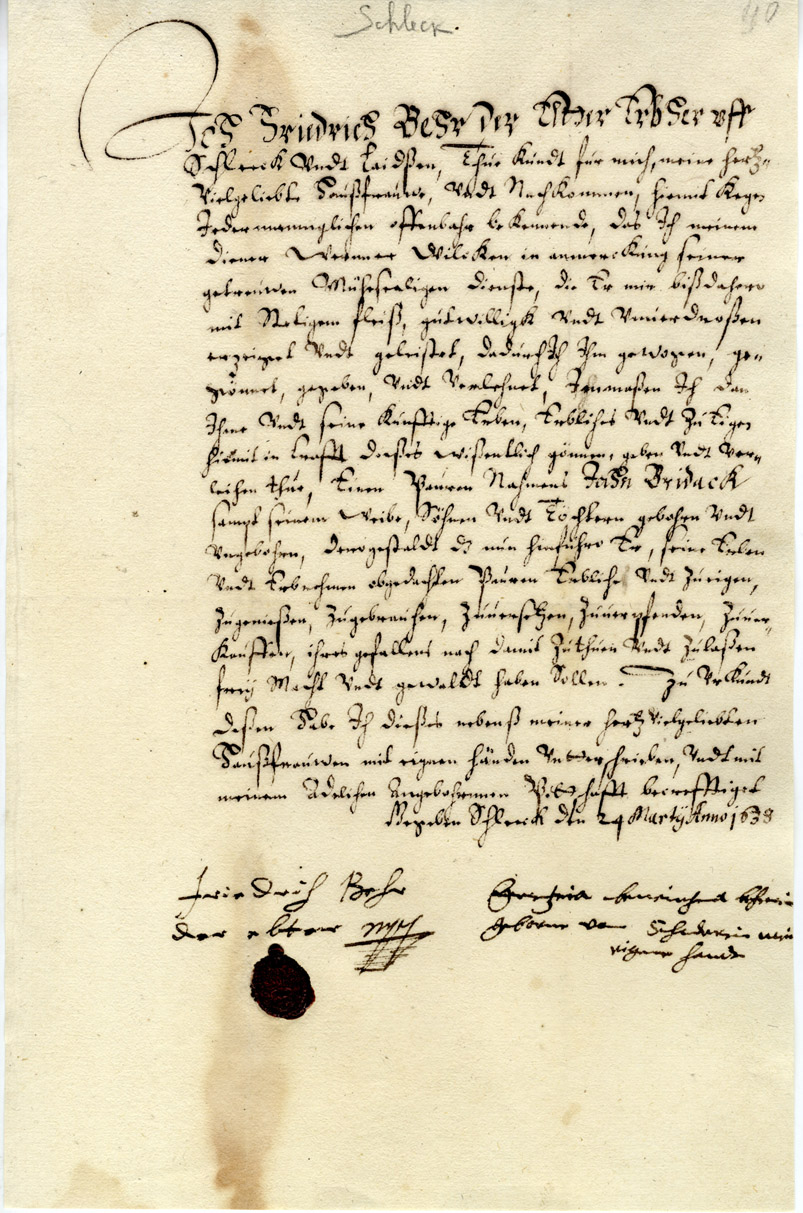 Schleck.
40
Ich Friedrich Behr der Elter Erbher uff
Schleeck Undt Laidßen, Thue Kundt für mich, meine hertz-
Vielgeliebte Haußfrauwe, Undt Nachkommen, hiemit kegen
Jedermanniglichen offenbahr bekennende, das Ich meinem
diener Wermer Wilcken in anmerckung seiner
getreuwen Mühesealigen dienste, die Er mir bißdahero
mit Stetigem fleiß, gutwilligk Undt Unuerdroßen
erzeiget Undt geleistet, dadurch Ich Ihm gewogen, ge-
gönnet, gegeben, Undt Verlehnet, Inmaßen Ich dan
Ihme Undt seine Künfftige Erben, Erbliches Undt Zu Eigen
hiemit in Krafft dießes wißentlich gönnen, geben Undt Ver-
leihen thue, Einen Pauren Nahmens Jahn Briduck
sampt seinem Weibe, Söhnen Undt Töchtern gebohren Undt
Ungebohren, dero gestaldt dz nun hinführo Er, seine Erben
Undt Erbnehmen obgedachten Pauren Erbliche Undt Zu eigen,
Zugenießen, Zugebrauchen, Zuuersetzen, Zuuerpfenden, Zuuer-
Kauffen, ihres gefallens nach damit Zuthuen Undt Zulaßen
freÿ Macht Undt gewaldt haben Sollen. Zu Urkundt
deßen Habe Ich dießes nebenß meiner hertz Vielgeliebten
Haußfrauwen mit eignen händen Unterschrieben, Undt mit
meinem Adelichen Angebohrnen Pitschafft becrefftiget
Gegeben Schleeck den 24 Martÿ Anno 1638
Friedrich Behr
der elter mpp
behrin
geborne von Schwerin mein
eigene handt